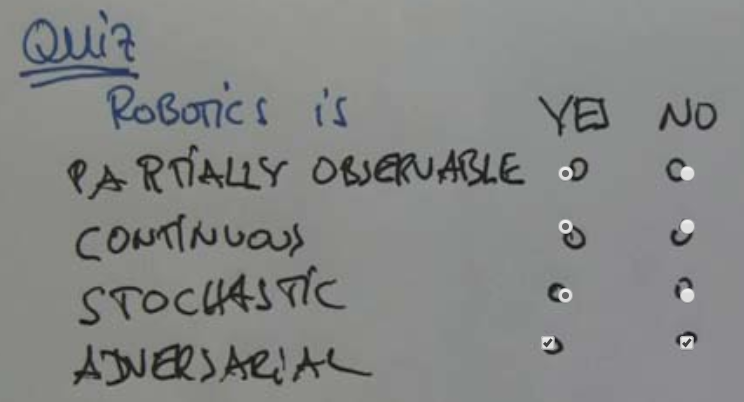 Quiz
ROBOTICS is YES NO
PARTIALLY OBSERVABLE
CONTINUOUS
STOCHASTIC
ADVERSARIAL